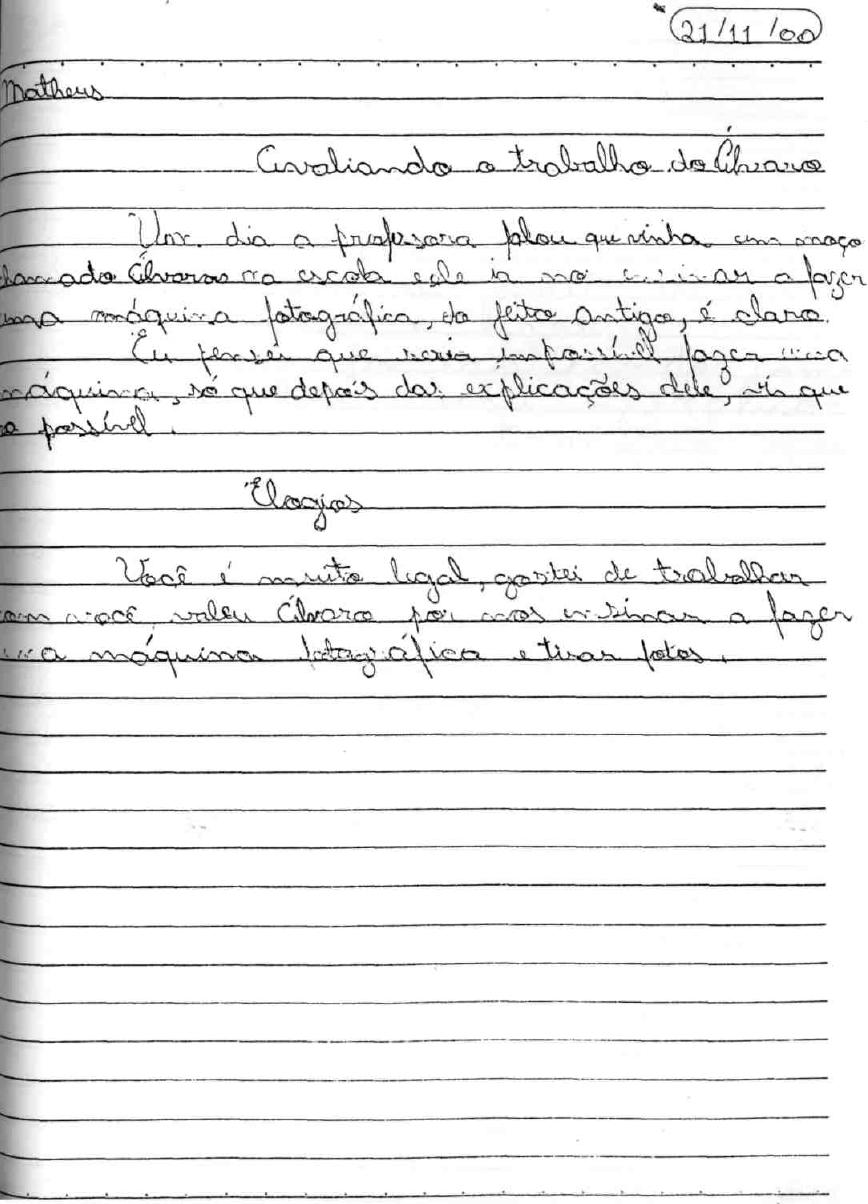 21/11/00
Matheus
Avaliando o trabalho do Álvaro
Um dia a profesora falou que vinha um moço
hamado Álvaro na escola e ele ia no ensinar a fazer
uma máquina fotográfica, do jeito antigo, é claro.
Eu pensei que seria impossível fazer uma
máquina, só que depois das explicações dele, vi que
o possível.
Elogios
Você é muito legal, gostei de trabalhar
om você, valeu Álvaro por nos ensinar a fazer
uma máquina fotográfica e tirar fotos.